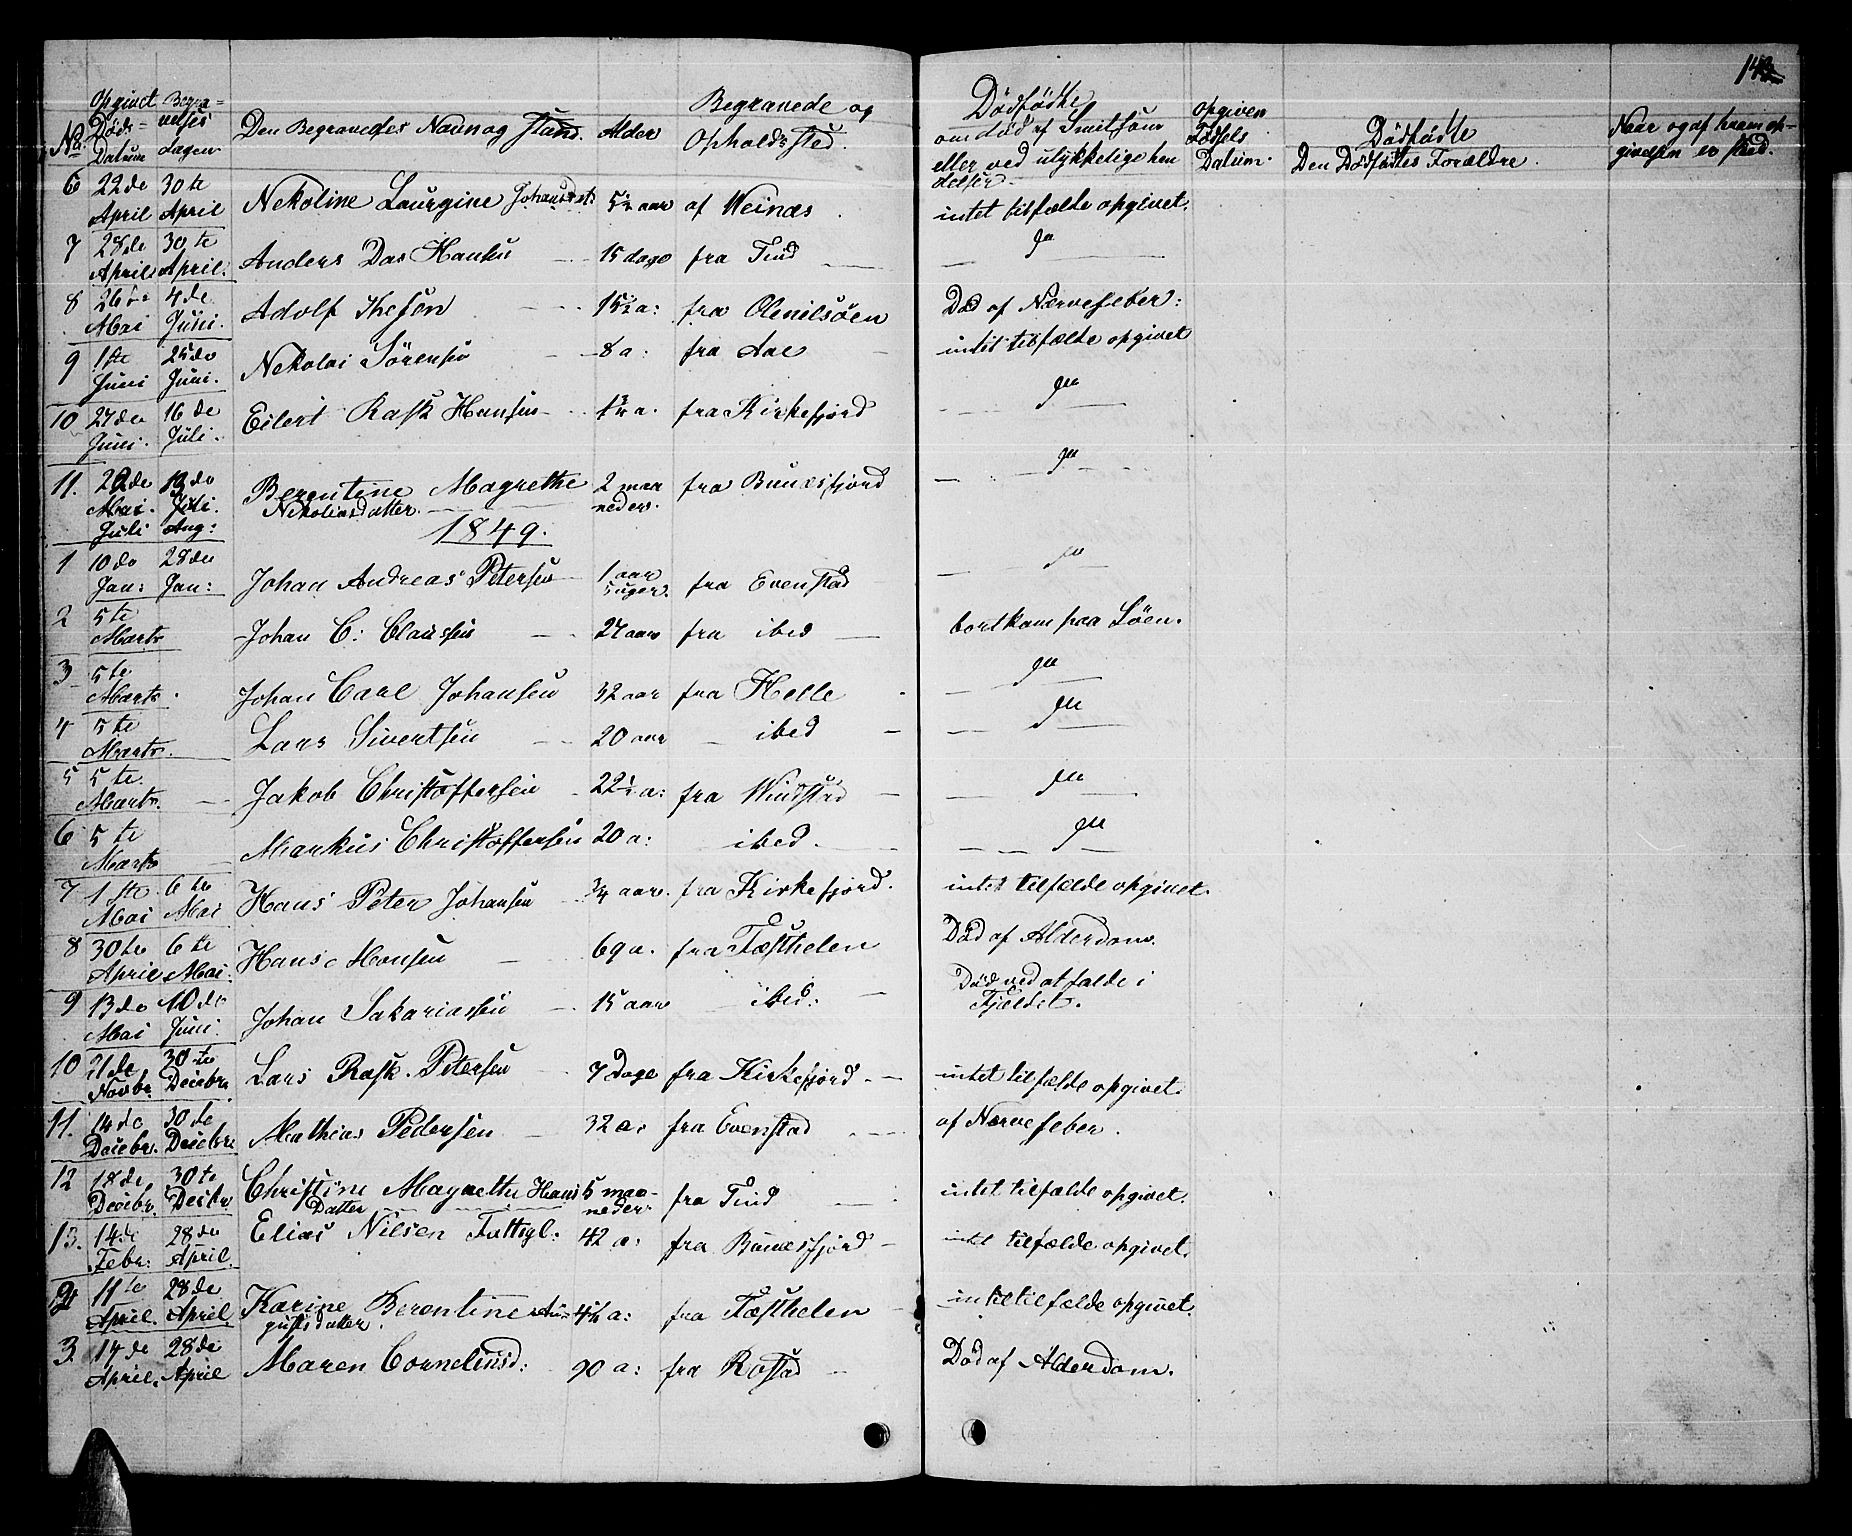 143
No. Opgivet Døds-Datum Begravelses dagen Den Begravedes Navn og Stand. Alder Begravede og Opholdssted. Dødfødte om død af Smitsom eller ved ulykkelige hendelser. opgiven Fødsels Datum. Dødfødte Den Dødfødtes Forældre. Naar og af hvem opgivelsen er skeed.
6 22de April 30te April Nekoline Laurgine Johansdat 5½ aar af Reines intet tilfælde opgivet.
7 28de April 30te April. Anders Das Hansen 15 dage fra Tind — do —
8 26de Mai 4de Juni. Adolf Ihesen 15½ a: fra Olenilsøen Død af Nærvefeber:
9 1ste Juni 25de Juni. Nekolai Sørensen 8 a: fra Aae intet tilfælde opgivet
10 27de Juni. 16de Juli. Eilert Rask Hansen 1½ a. fra Kirkefjord — do —
11. 22de Mai. Juli 19de Juli. Aug: Berentine Magrethe Nekoliasdatter. 2 maaneder. fra Bunesfjord — do —
1849.
1 10de Jan: 28de Jan: Johan Andreas Petersen 1 aar 5 uger. fra Evenstad — do —
2 5te Marts Johan C: Claussen 27 aar fra ibed — bortkom paa Søen.
3 5te Marts. Johan Carl Johansen 32 aar fra Helle — do —
4 5te Marts. Lars Sivertsen 20 aar — ibed — do —
5 5te Marts. Jakob Christoffersen 22½ a: fra Windstad — do —
6 5te Marts Markus Christoffersen 20 a: ibed. — do —
7 1ste Mai 6te Mai Hans Peter Johansen ¾ aar. fra Kirkefjord. intet tilfælde opgivet.
8 30te April 6te Mai. Hans Hansen 69 a. fra Tæsthelen Død af Alderdom.
9 13de Mai 10de Juni. Johan Sakariassen 15 aar ibed: Død ved at falde i Fjeldet.
10 21de Novbr. 30te Decebr. Lars Rask. Petersen 7 Dage fra Kirkefjord. — intet tilfælde opgivet.
11. 14de Decebr. 30de Decebr Mathias Pedersen 32 a. fra Evenstad af Nærvefeber.
12 18de Decebr. 30te Decebr Christine Magnethe Hans Datter 5 maaneder. fra Tind intet tilfælde opgivet.
13. 14de Febr: 28de April. Elias Nilsen Fattigl: 42 a: fra Bunesfjord — intet tilfælde opgivet.
2 11te April. 28de April. Karine Berentine Augustsdatter. 4½ a: fra Tæsthelen — intet tilfælde opgivet.
3. 17de April. 28de April Maren Corneliusd: 90 a: fra Rostad — Død af Alderdom.